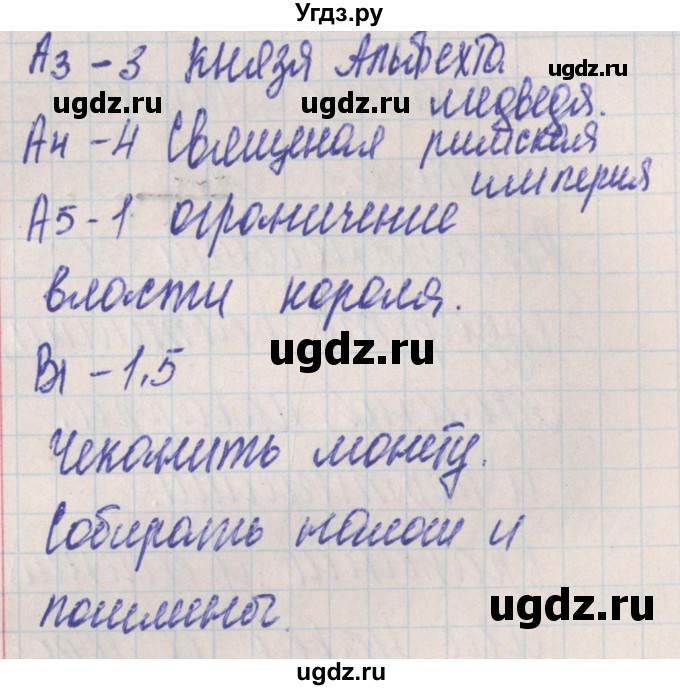 Угдз.ру
А3 - 3 князя Альбрехта
медведя.
ugdz.ru
ugdz.ru
А4 - 4 Священая римская
империя
А5 - 1 ограничение
власти короля.
ugdz.ru
В1 - 1,5
Чеканить монету.
Собирать налоги и
пошлины.
ugdz.ru
ugdz.ru